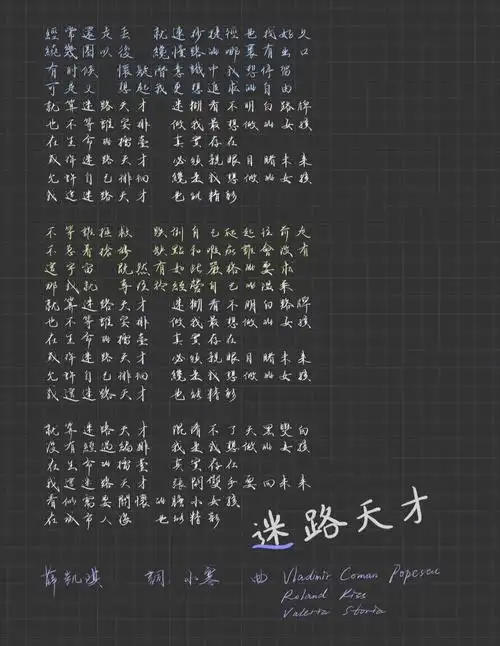 經常還是丟 就連抄捷徑也找好久
繞幾圈以後 纔懂路的哪裏有出口
有时候 懷疑 潛意識中我想停留
可是又 想起我更想追求的自由
就算迷路天才 迷糊看不明白路牌
也不等誰安排 做我最想做的女孩
在生命的擂臺 真實存在
或许迷路天才 必須親眼目睹未来
允許自己徘徊 纔是我想做的女孩
我這迷路天才 也能精彩
不等誰拯救 跌倒自己爬起往前走
不忍着 缺點和瑕疵誰會沒有
這宇宙 既然有如此嚴格的要求
那我就 經營自己的溫柔
就算迷路天才 迷糊看不明白路牌
也不等誰安排 做我最想做的女孩
在生命的擂臺 真實存在
或许迷路天才 必須親眼目睹未来
允許自己徘徊 纔是我想做的女孩
我這迷路天才 也能精彩
就算迷路天才 脫離不了天黑變白
沒有經過編排 我是我想做的女孩
在生命的擂臺 真實存在
我這迷路天才 張開雙手要回未来
看似需要關懷的膽小女孩
在城市人海 也似精彩
迷路天才
薛凱琪 詞 小寒 曲 Vladimir Coman Popescu
Roland Kiss
Valeria Storia